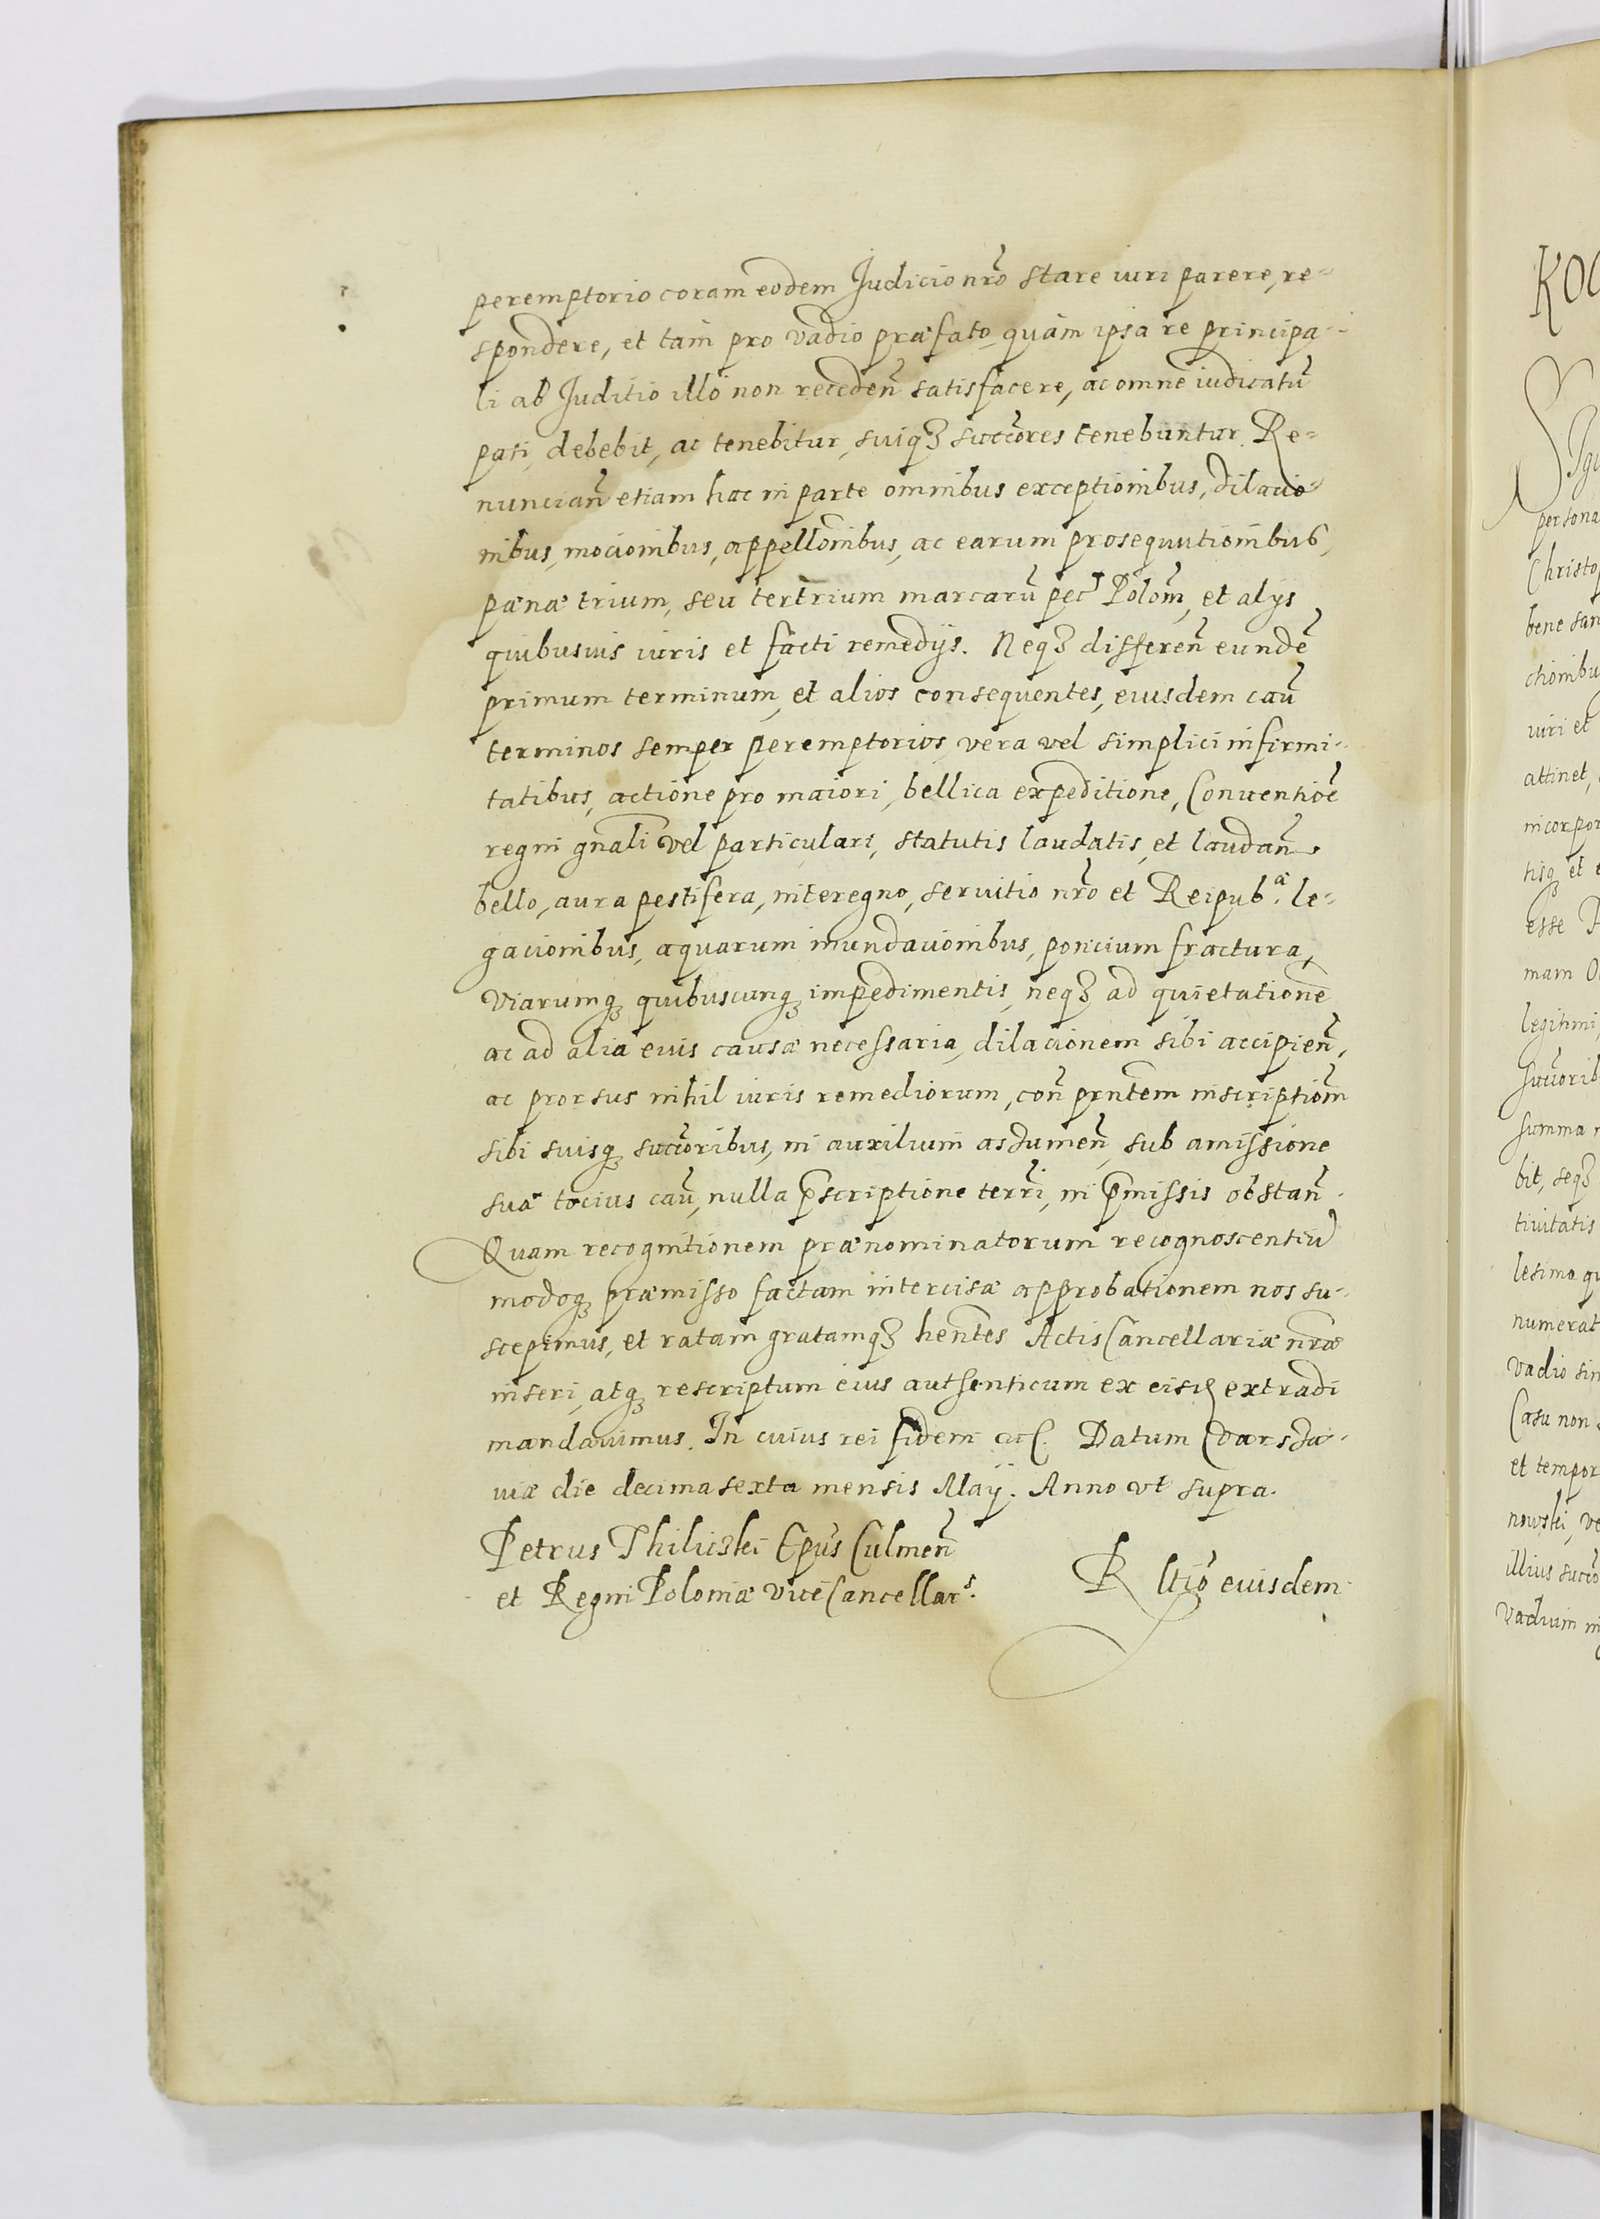 peremptorio coram eodem Judicio nr̃o stare iuri parere, re=
spondere, et tam pro vadio præfato quàm ipsa re principa=
li ab Juditio illo non receden̄ satisfacere, ac omne iudicatū
pati, debebit, ac tenebitur, suiqȝ succōres tenebuntur. Re=
nuncian̄ etiam hac in parte omnibus exceptionibus, dilacio=
nibus, mocionibus, appellōnibus, ac earum prosequutionibus,
pænæ trium, seu ter trium marcarū pec Polōm, et alijs
quibusuis iuris et facti remedijs. Neqȝ differen̄ eundē
primum terminum, et alios consequentes, eiusdem cau̅
terminos semper peremptorios, vera vel simplici infirmi=
tatibus, actione pro maiori, bellica expeditione, Conuentiōe
regni gn̄ali vel particulari, statutis laudatis, et laudan̄
bello, aura pestifera, interegno, seruitio nr̃o et Reipub.æ le=
gacionibus, aquarum inundacionibus, poncium fractura,
viarumqȝ quibuscunqȝ impedimentis, neqȝ ad quietationē
ac ad alia eius causæ necessaria, dilacionem sibi accipien̄,
ac prorsus nihil iuris remediorum, con̄ prn̄tem inscriptiōm
sibi suisqȝ succōribus, in auxilium assumen̄, sub amissione
suæ tocius cau̅, nulla p̄scriptione terr̄i, in p̄missis obstan̄.
Quam recognitionem prænominatorum recognoscentiū
modoqȝ præmisso factam intercisæ approbationem nos su=
scepimus, et ratam gratamqȝ hen̄tes Actis Cancellariæ nr̃æ
inseri, atqȝ rescriptum eius authenticum ex eisd extradi
mandauimus. In cuius rei fidem etc. Datum Varssa=
uiæ die decima sexta mensis Maij. Anno vt supra.
Petrus Thilicki Ep̄us Culmen̄
et Regni Poloniæ ViceCancellar̃s.
R ltio eiusdem